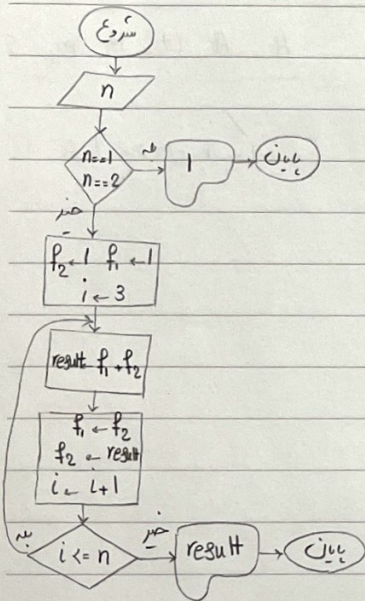 شروع
n
n==1
n==2
بله
1
پایان
خیر
f₂ ← 1 f₁ ← 1
i ← 3
result ← f₁ + f₂
f₁ ← f₂
f₂ ← result
i ← i+1
بله
i <= n
خیر
result
پایان